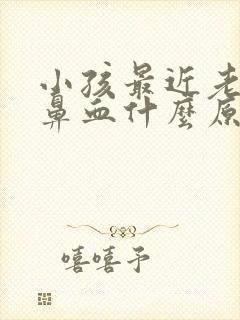 小孩最近老
鼻血什麼原
嘻嘻予